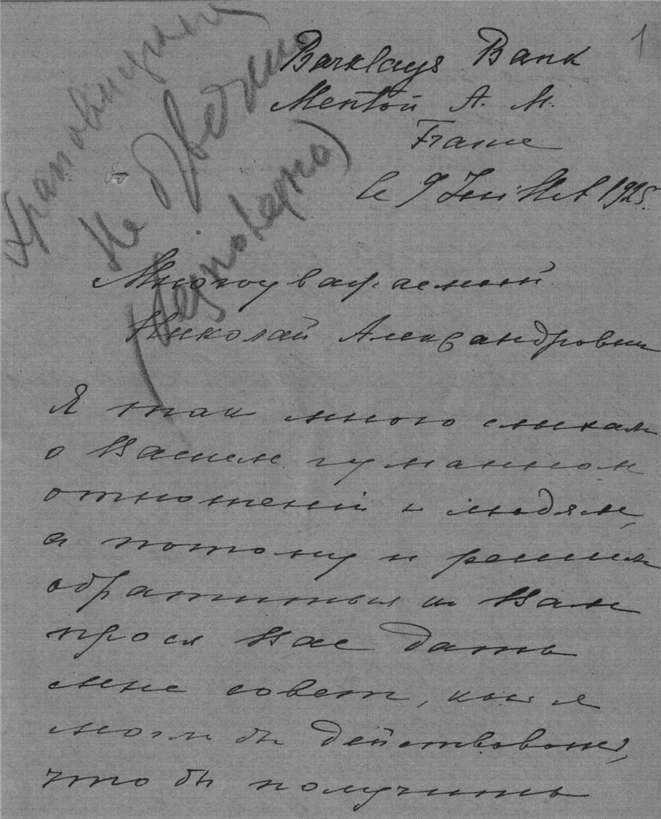 1
Barclays Bank
Menton A. M.
France
le 9 Juillet 1925.
Не
Многоуважаемый
Николай Александрович
Я так много слыхал
о Вашем гуманном
отношении к людям,
а потому и решил
обратиться к Вам
прося Вас дать
мне совет, как я
мог бы действовать,
что бы получить